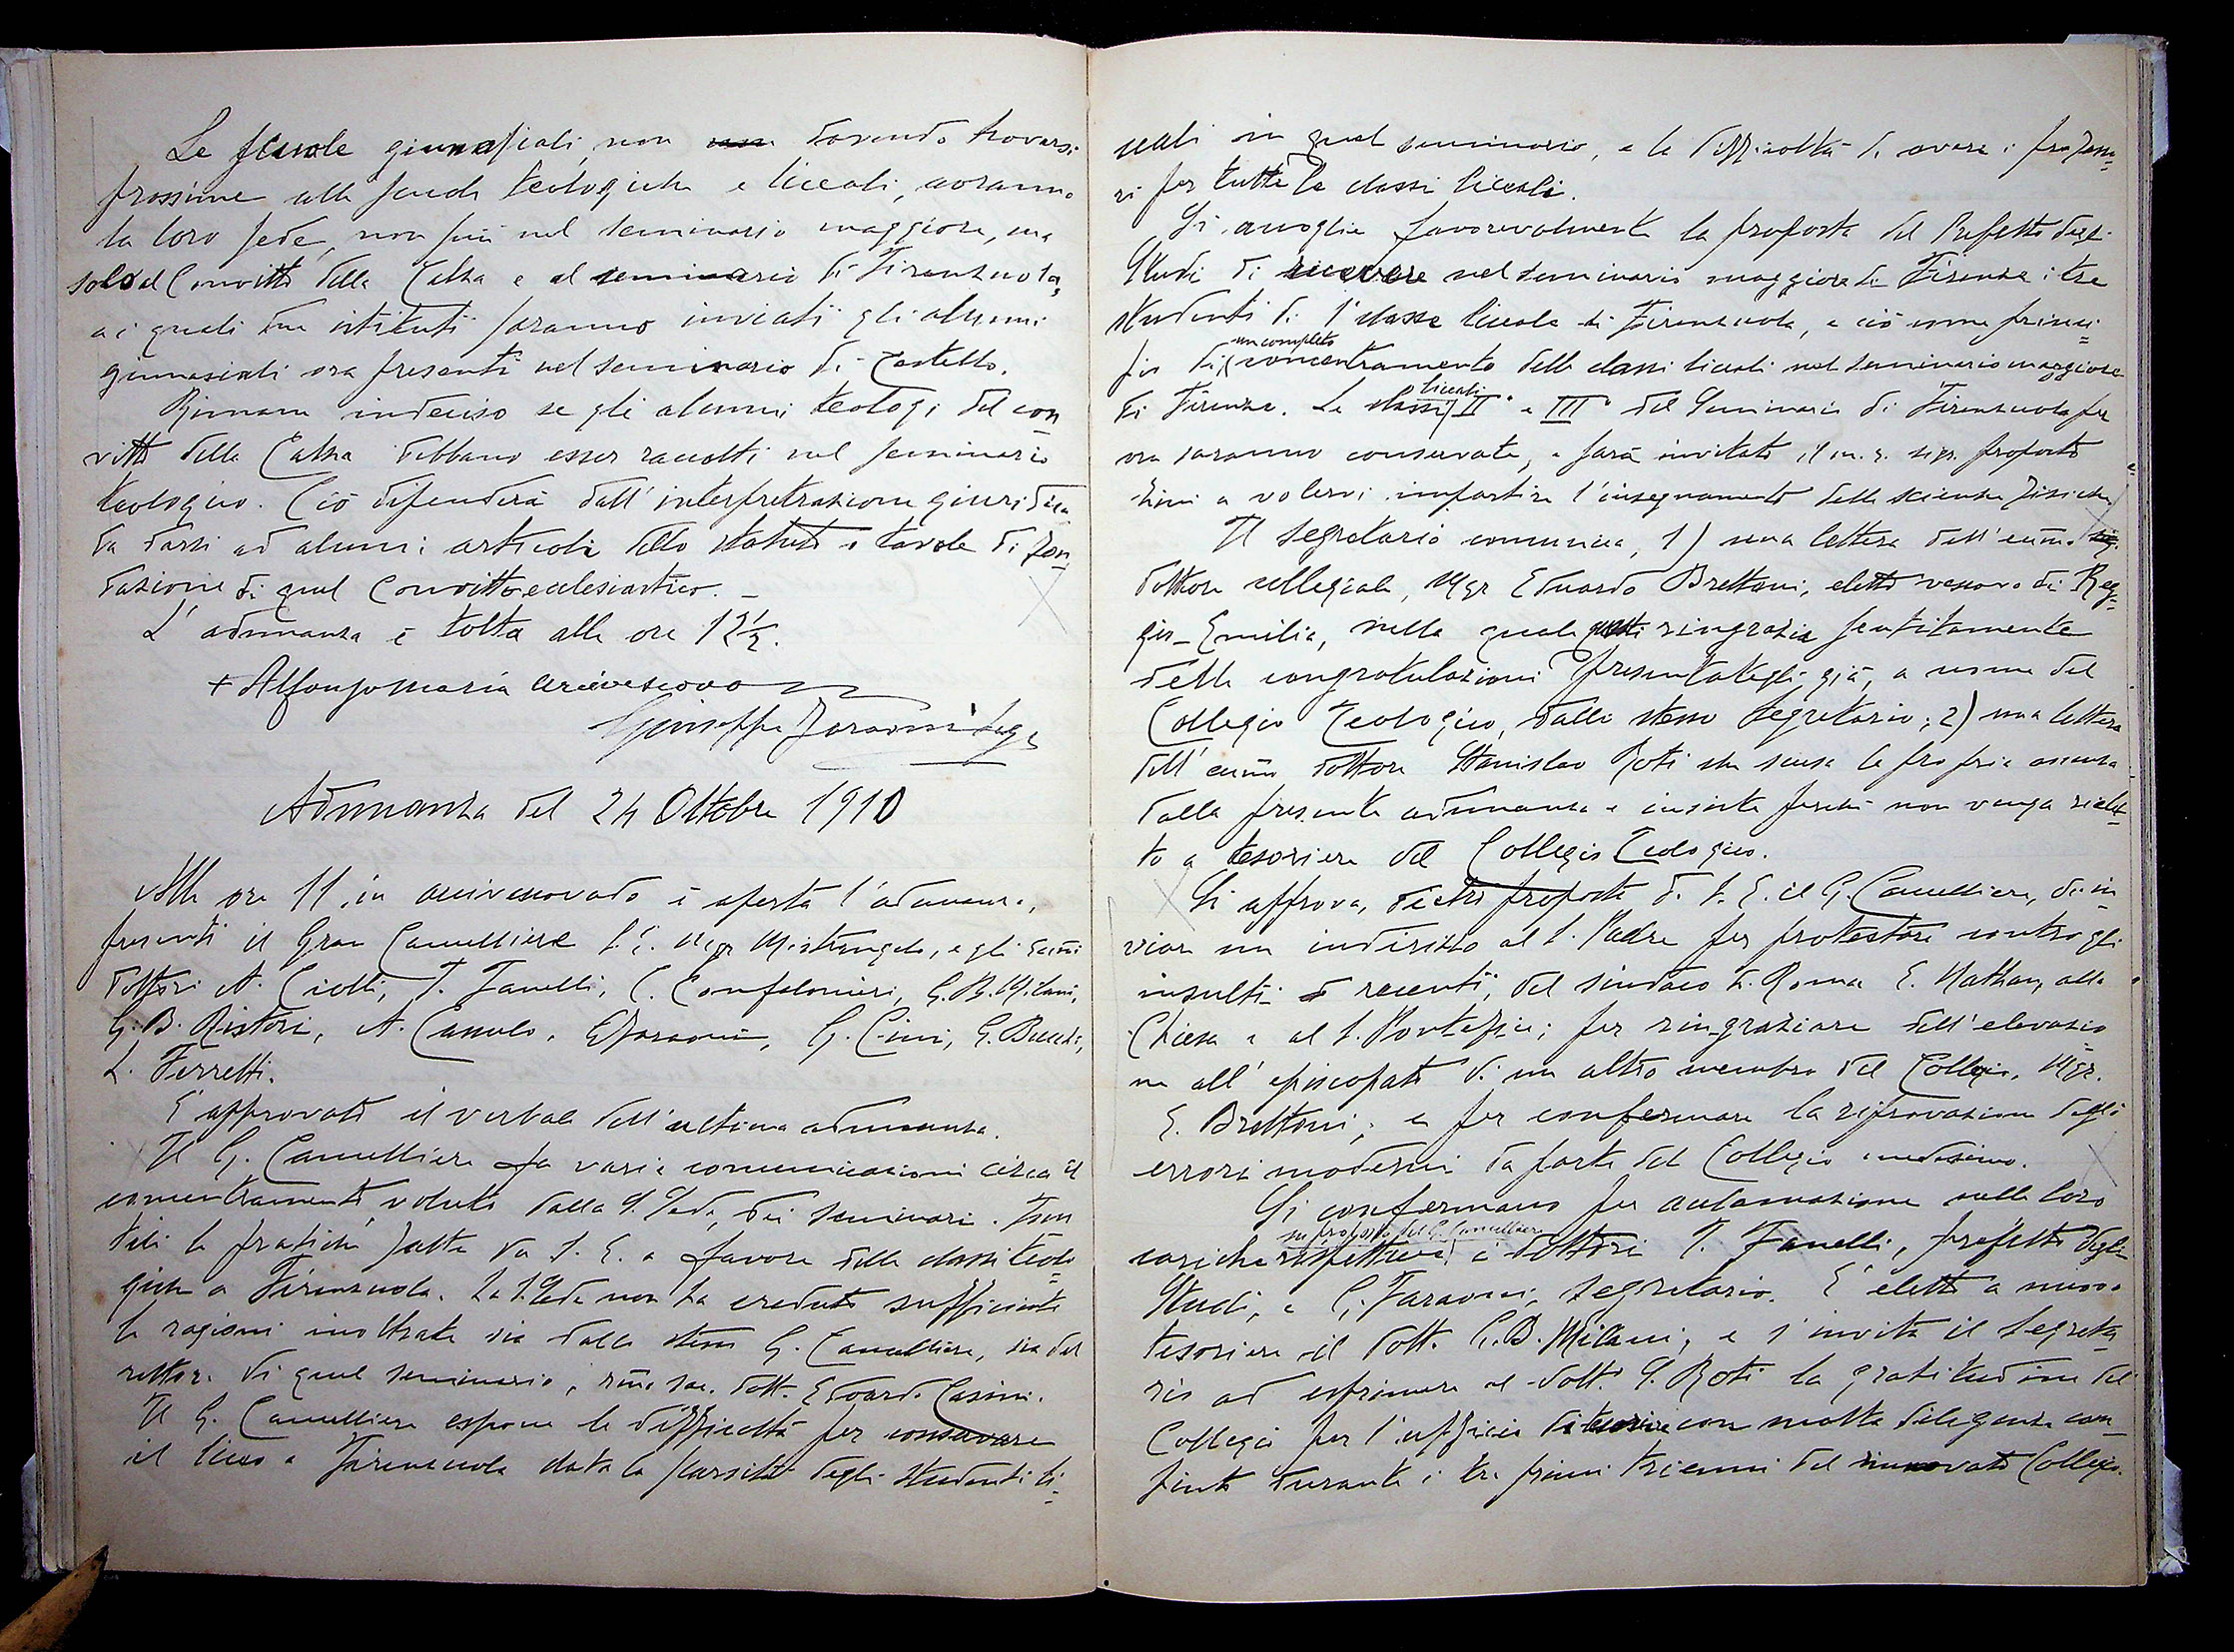 Le scuole ginnasiali, non non dovendo trovarsi
prossime alle scuole teologiche e liceali, avranno
la loro sede, non più nel seminario maggiore, ma
solo al Convitto della Calza e al seminario di Firenzuola,
ai quali due istituti saranno inviati gli alunni
ginnasiali ora presenti nel seminario di Castello.
Rimane indeciso se gli alunni teologi del con=
vitto della Calza debbano esser raccolti nel seminario
teologico. Ciò dipenderà dall'interpretrazione giuridica
da darsi ad alcuni articoli dello statuto e tavole di fon=
dazione di quel Convitto ecclesiastico. –
L'adunanza è tolta alle ore 12 ½.
+ Alfonso Maria Arcivescovo
Giuseppe Faraoni Seg.
Adunanza del 24 Ottobre 1910
Alle ore 11, in arcivescovado è aperta l'adunanza,
presenti il Gran Cancelliere S. E. Mgr Mistrangelo, e gli ecc̃mi
dottori A. Ciolli, T. Fanelli, C. Confalonieri, G. B. Milani,
G. B. Ristori, A. Cassulo, G Faraoni, G. Cini, G. Bucchi,
L. Ferretti.
È approvato il verbale dell'ultima adunanza.
Il G. Cancelliere fa varie comunicazioni circa il
concentramento, voluto dalla S. Sede, dei seminari. Inu
tili le pratiche fatte da S. E. a favore delle classi teolo=
giche a Firenzuola. La S. Sede non ha creduto sufficienti
le ragioni inoltrate sia dallo stesso G. Cancelliere, sia dal
rettore di quel seminario, rm̃o sac. dott. Edoardo Casini.
Il G. Cancelliere espone le difficoltà per conservare
il liceo a Firenzuola data la scarsità degli studenti li=
ceali in quel seminario, e la difficoltà di avere i professo=
ri per tutte le classi liceali.
Si accoglie favorevolmente la proposta del Prefetto degli
Studi di ricevere nel seminario maggiore di Firenze i tre
studenti di Iª classe liceale di Firenzuola, e ciò come princi=
un completo
pio di concentramento delle classi liceali nel seminario maggiore
liceali
di Firenze. Le classi IIª e IIIª del Seminario di Firenzuola per
ora saranno conservate, e sarà invitato il m. r. sig. proposto
Cini a volervi impartire l'insegnamento delle scienze fisiche.
Il segretario comunica, 1) una lettera dell'ecc̃mo sig.
dottore collegiale, Mgr Eduardo Brettoni, eletto vescovo di Reg=
gio-Emilia, nella quale questi ringrazia sentitamente
delle congratulazioni presentategli, già, a nome del
Collegio Teologico, dallo stesso segretario; 2) una lettera
dell'ecc̃mo dottore Stanislao Roti che scusa la propria assenza
dalla presente adunanza e insiste perchè non venga rielet=
to a tesoriere del Collegio Teologico.
Si approva, dietro proposta di S. E. il G. Cancelliere, di in=
viare un indirizzo al S. Padre per protestare contro gli
insulti recenti, del sindaco di Roma E. Nathan, alla
Chiesa e al S. Pontefice; per ringraziare dell'elevazio=
ne all'episcopato di un altro membro del Collegio, Mgr.
E. Brettoni; e per confermare la riprovazione degli
errori moderni da parte del Collegio medesimo.
Si confermano per acclamazione nelle loro
su proposta del G. Cancelliere
cariche rispettive, i dottori T. Fanelli, prefetto degli
Studi, e G. Faraoni, segretario. È eletto a nuovo
tesoriere il dott. G. B. Milani, e s'invita il segreta=
rio ad esprimere al dott. S. Roti la gratitudine del
Collegio per l'ufficio di tesoriere con molta diligenza com=
piuto durante i tre primi trienni del rinnovato Collegio.